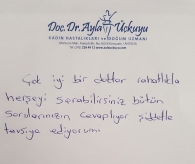 Doç. Dr. Ayla Üçkuyu
KADIN HASTALIKLARI ve DOĞUM UZMANI
Çok iyi bir doktor rahatlıkla
herşeyi sorabilirsiniz bütün
sorularınızın cevaplıyor şiddetle
tavsiye ediyorum